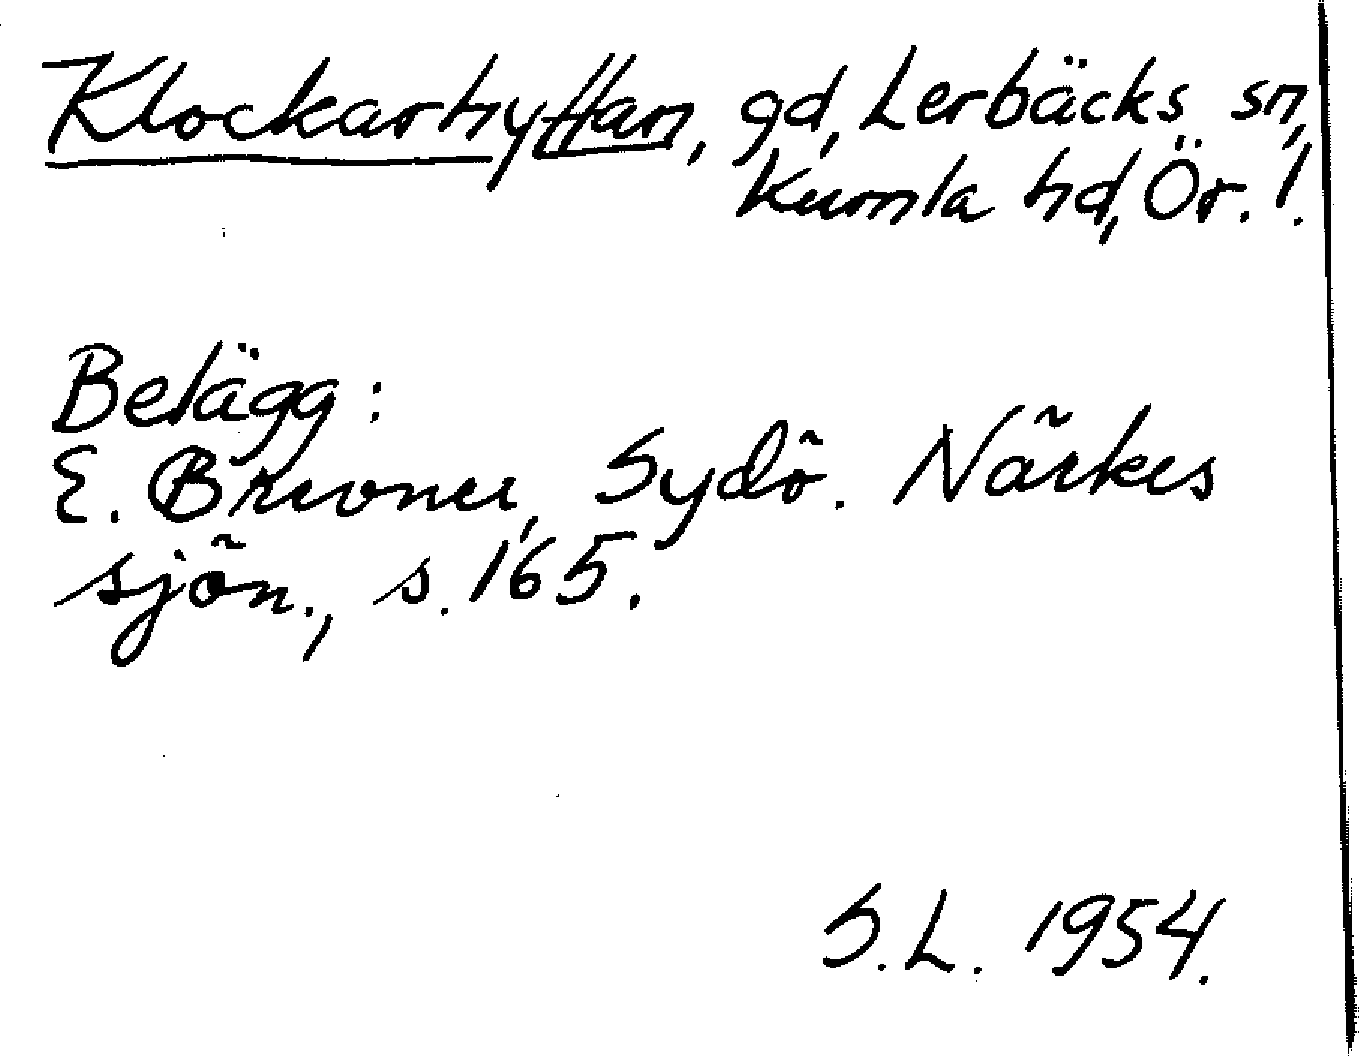 Klockarhyttan, gd, Lerbäcks sn,
Kumla hd, Ör. l.
Belägg:
E. Brevner, Sydö. Närkes
sjön., s. 165.
S.L. 1954.